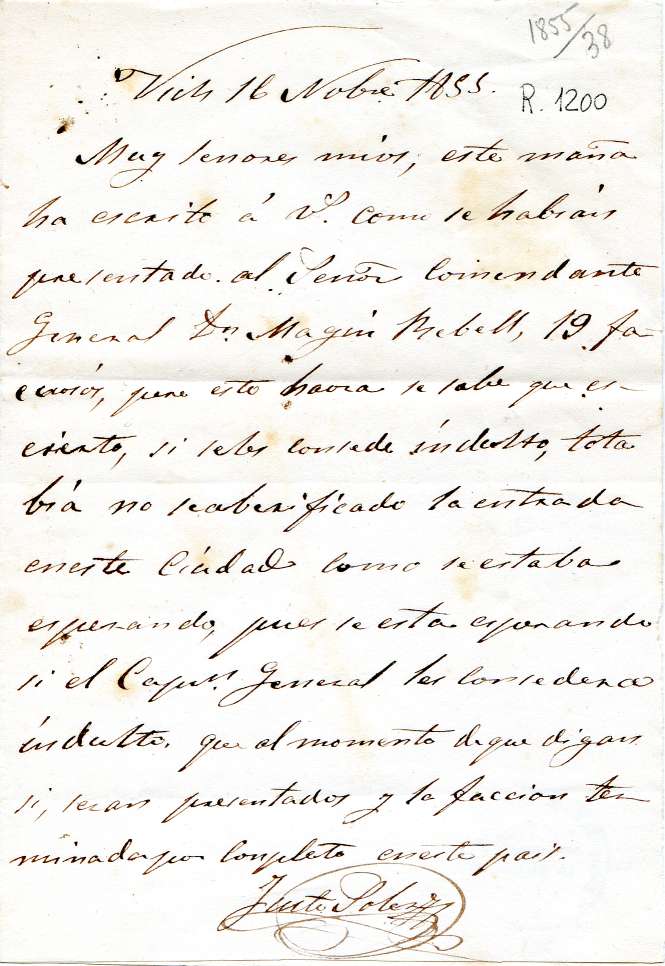 1855/38
Vich 16 Nobre. 1855.
R. 1200
Muy senores mios, este mañā
ha escrito á Vs. como se habian
presentado. al Señor Comendante
General Dn. Magin Rebell, 19 fa-
ciosós, pero esto haora se sabe que es-
cierto, si seles consede índulto, tota
biá no seaberificado la entrada
eneste Ciúdad como se estaba
esperando, pues se esta esperando
si el Capn. General les consedera
índulto. que al momento deque digan
si, seran presentados y la faccion ter
minada por conpleto eneste pais.
Justo Soler